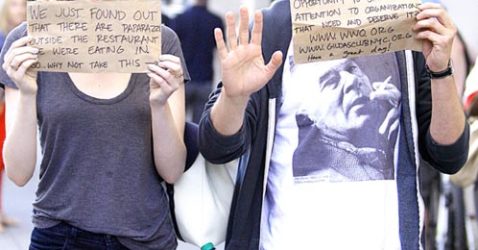 WE JUST FOUND OUT
THAT THERE ARE PAPARAZZI
OUTSIDE THE RESTAURANT
WE WERE EATING IN
SO... WHY NOT TAKE THIS
OPPORTUNITY TO
ATTENTION TO ORGANIZATIONS
THAT NEED AND DESERVE IT?
WWW.WWO.ORG
WWW.GILDASCLUBNYC.ORG
Have a great day!